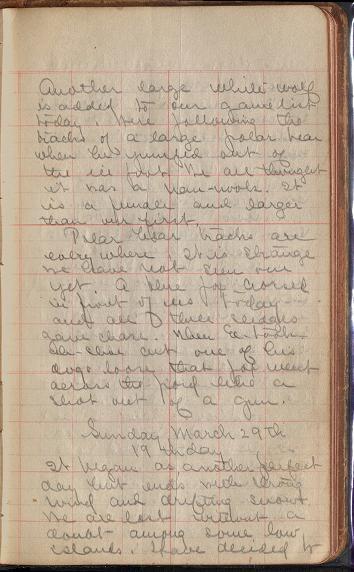 Another large white wolf
is added to our game list
today. Were following the
tracks of a large polar bear
when he jumped out of
the ice foot. We all thought
it was a nan-nook. It
is a female and larger
than our first.
Polar bear tracks are
everywhere. It is strange
we have not seen one
yet. A blue fox crossed
in front of us today
and all three sledges
gave chase. When E-took-
a-shoo cut one of his
dogs loose that fox went
across the ice like a
shot out of a gun.
Sunday March 29th
19th day
It began as another perfect
day but ends with strong
wind and drifting snow.
We are lost without a
doubt among some low
islands. Have decided to